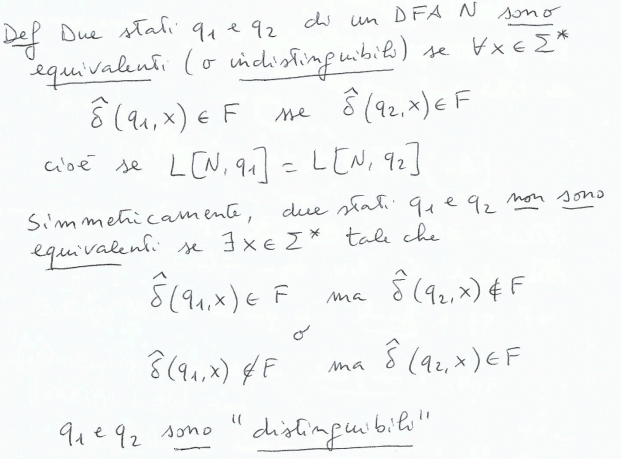 Def Due stati q₁ e q₂ di un DFA N sono
equivalenti (o indistinguibili) se ∀x ∈ Σ*
δ̂(q₁,x) ∈ F sse δ̂(q₂,x) ∈ F
cioè se L[N,q₁] = L[N,q₂]
Simmetricamente, due stati q₁ e q₂ non sono
equivalenti se ∃x ∈ Σ* tale che
δ̂(q₁,x) ∈ F ma δ̂(q₂,x) ∉ F
o
δ̂(q₁,x) ∉ F ma δ̂(q₂,x) ∈ F
q₁ e q₂ sono "distinguibili"